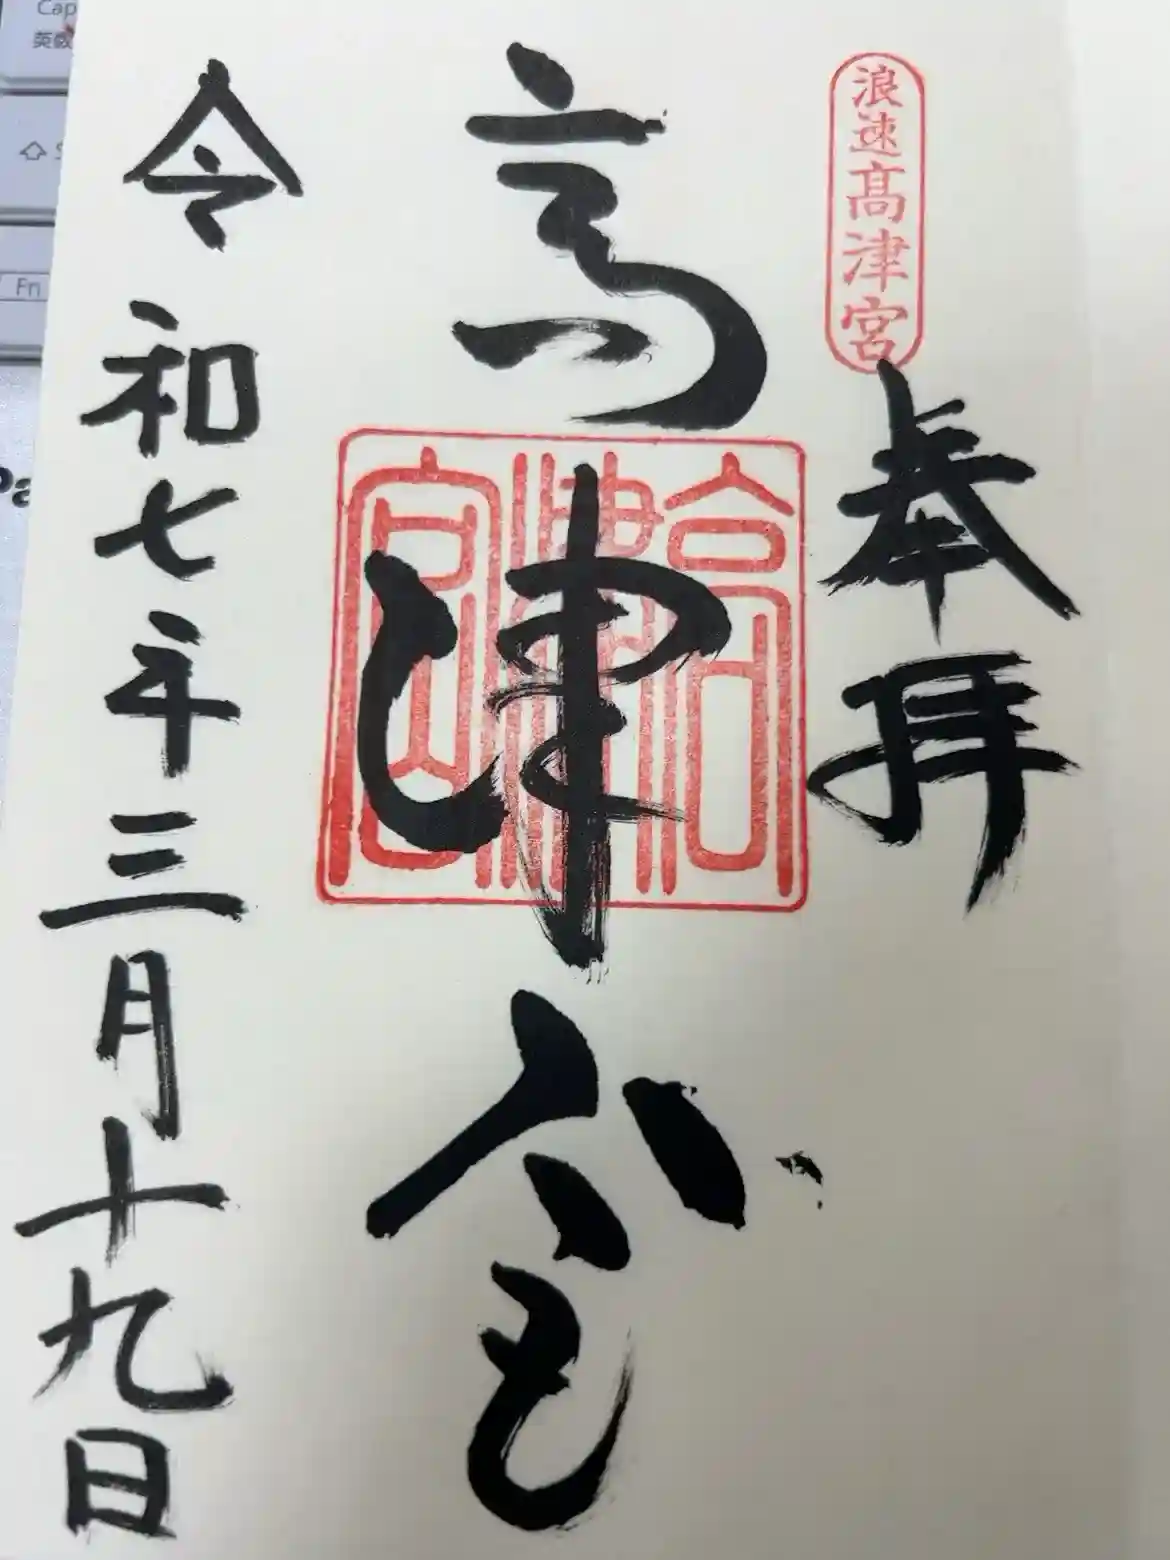 浪速高津宮
奉拝
高津宮
高津宮
令和七年三月十九日
Cap
英数
Fn
Pa